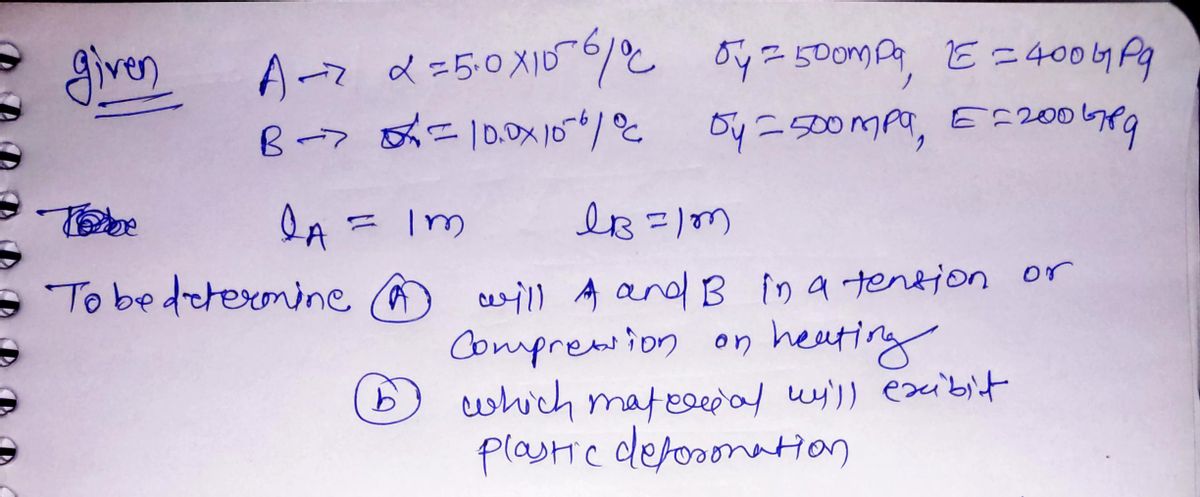 given A → α = 5.0 X10⁻⁶/°c σy = 500mPa, E = 400GPa
B → α = 10.0x10⁻⁶/°c σy = 500mPa, E = 200GPa
lA = 1m lB = 1m
To be determine (A) will A and B in a tension or
Compression on heating
(b) which material will exibit
plastic deformation